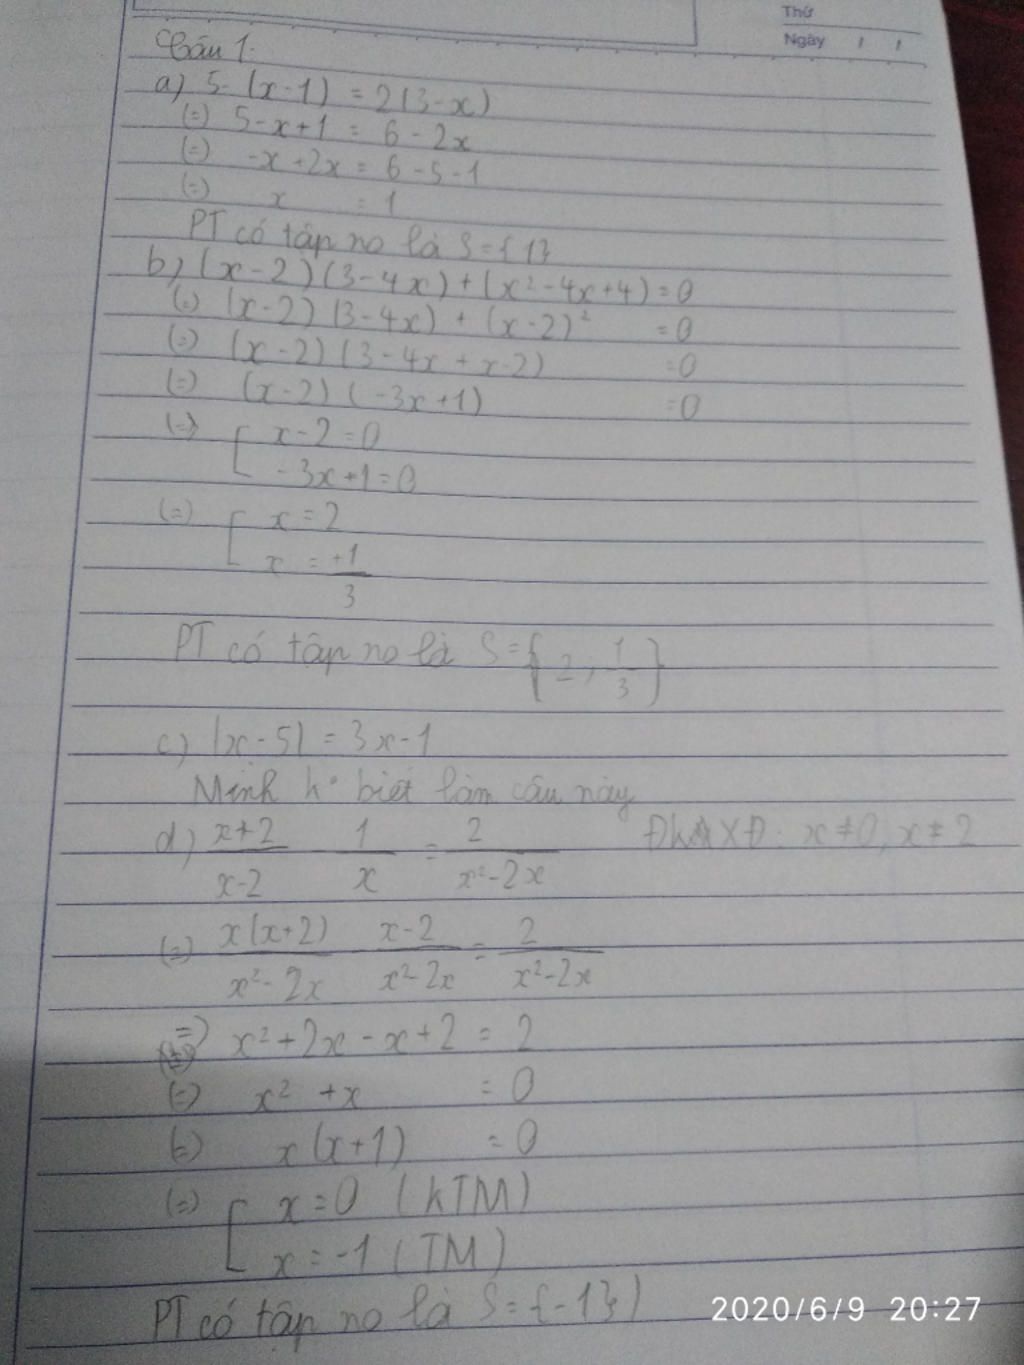 Thứ
Ngày / /
Câu 1:
a) 5-(x-1) = 2(3-x)
(=) 5-x+1 = 6-2x
(=) -x+2x = 6-5-1
(=) x = 1
PT có tập no là S={1}
b) (x-2)(3-4x)+(x²-4x+4)=0
(=) (x-2)(3-4x)+(x-2)² =0
(=) (x-2)(3-4x+x-2) =0
(=) (x-2)(-3x+1) =0
(=) [ x-2=0
-3x+1=0
(=) [ x=2
x = +1/3
PT có tập no là S={2, 1/3}
c) |x-5| = 3x-1
Mình k° biết làm câu này
d) x+2/x-2 - 1/x = 2/x²-2x ĐKXĐ: x≠0, x≠2
(=) x(x+2)/x²-2x - x-2/x²-2x = 2/x²-2x
=> x²+2x-x+2 = 2
(=) x²+x = 0
(=) x(x+1) =0
(=) [ x=0 (kTM)
x=-1 (TM)
PT có tập no là S={-1})
2020/6/9 20:27